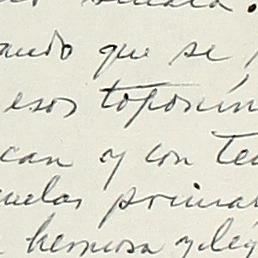 ando que se
esos toponím
can y con te
uelas primar
hermosa y lég